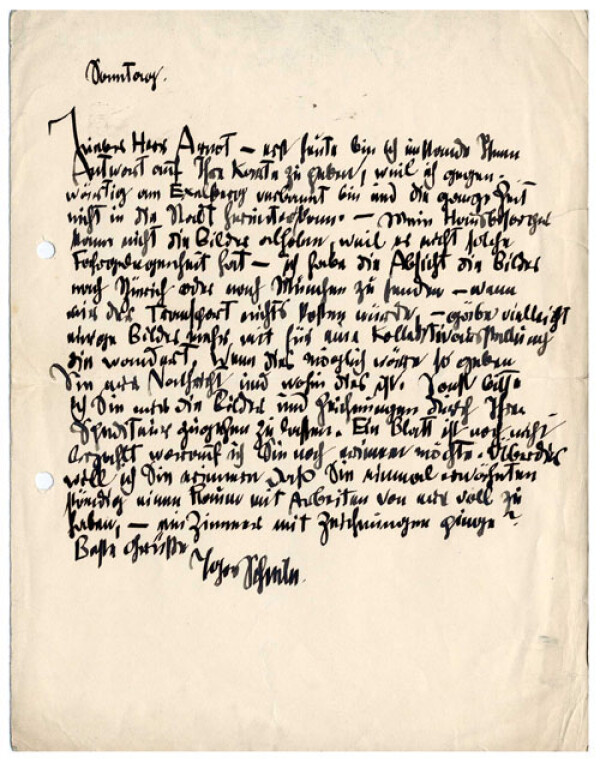 Sonntag.
Lieber Herr Arnot – erst heute bin ich imstande Ihnen
Antwort auf Ihre Karte zu geben, weil ich gegen-
wärtig am Exelberg verbannt bin und die ganze Zeit
nicht in die Stadt herunterkann. – Mein Hausbesorger
kann nicht die Bilder abholen, weil er nicht solche
Fahrgelegenheit hat – ich habe die Absicht die Bilder
nach Zürich oder nach München zu senden – wenn
mir der Transport nichts kosten würde, – gäbe vielleicht
einige Bilder mehr mit für eine Kollektivausstellung
die wandert. Wenn dies möglich wäre so geben
Sie mir Nachricht und wohin dies ist. Sonst bitte
ich Sie mir die Bilder und Zeichnungen durch Ihren
Spediteur zugehen zu lassen. Ein Blatt ist noch nicht
bezahlt worauf ich Sie noch erinnern möchte. Überdies
will ich Sie erinnern daß Sie einmal erwähnten
ständig einen Raum mit Arbeiten von mir voll zu
haben, – ein Zimmer mit Zeichnungen ginge?
Beste Grüße